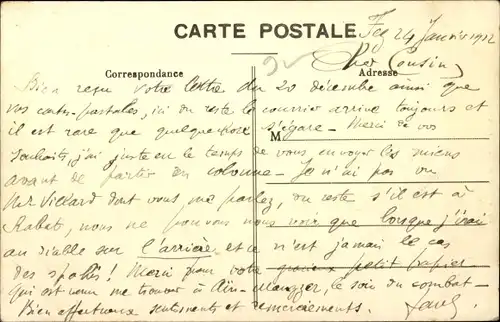 CARTE POSTALE
Fez 24 Janvier 1912
Correspondance
Adresse
Cher Cousin,
Bien reçu votre lettre du 20 décembre ainsi que
vos cartes-postales, ici du reste le courrier arrive toujours et
il est rare que quelque chose s'égare — Merci de vos
M
souhaits, j'ai juste eu le temps de vous envoyer les miens
avant de partir en colonne — Je n'ai pas vu
Mr Villard dont vous me parlez, du reste s'il est à
Rabat, nous ne pouvons nous voir que lorsque j'irai
au diable sur l'arrière et ce n'est jamais le cas
des spahis ! Merci pour votre gracieux petit papier
qui est venu me trouver à Aïn- le soir du combat —
Bien affectueux sentiments et remerciements.